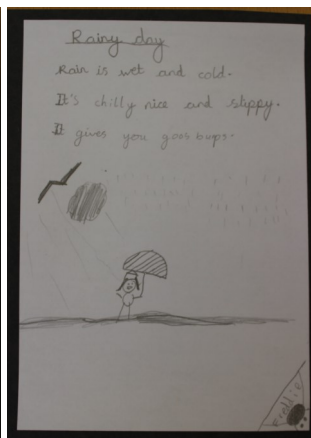 Rainy day
Rain is wet and cold.
It's chilly nice and slippy.
It gives you goos bups.